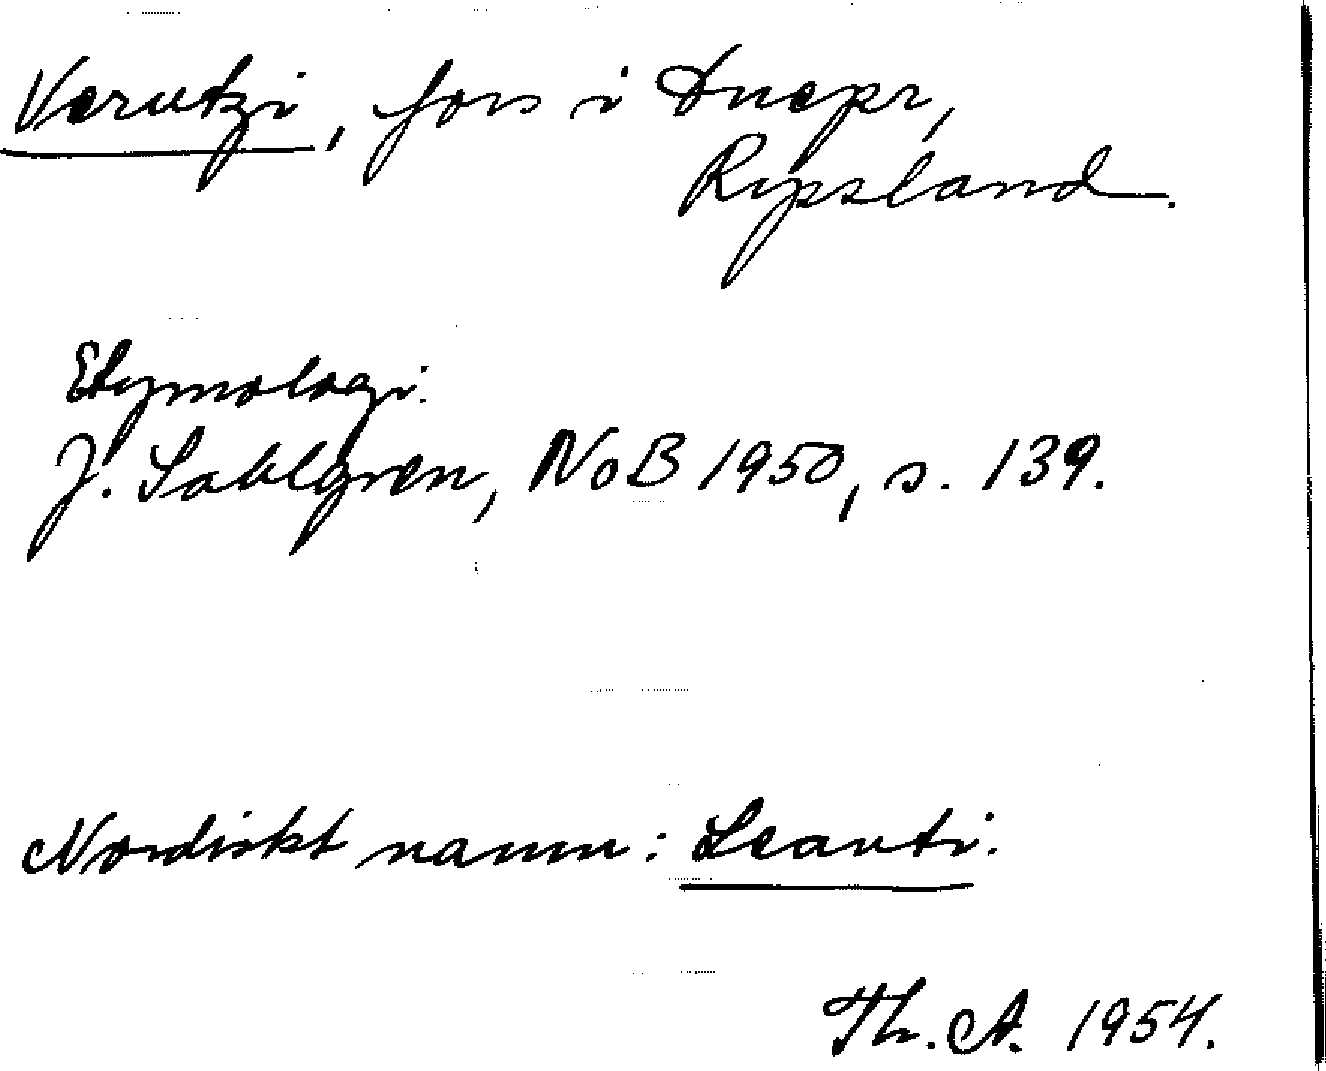 Verutzi, fors i Dnepr,
Ryssland.
Etymologi:
J. Sahlgren, NoB 1950, s. 139.
Nordiskt namn: Leanti.
Th. A. 1954.